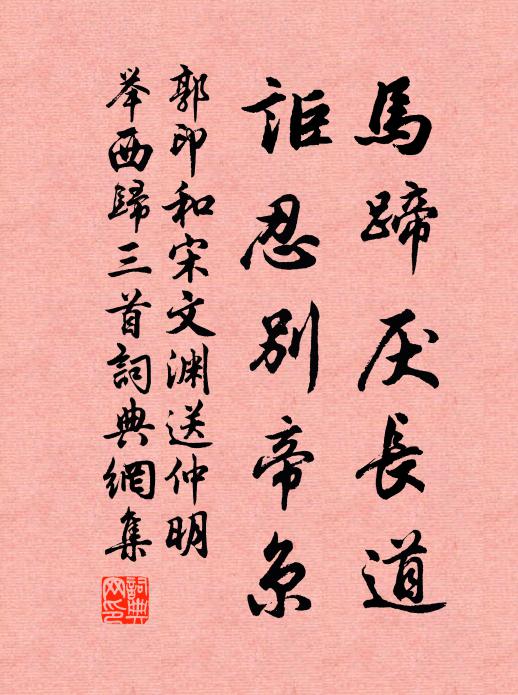 馬蹄厌長道
詎忍別帝京
郭印和宋文渊送仲明
举西歸三首詞典網集
詞典網印